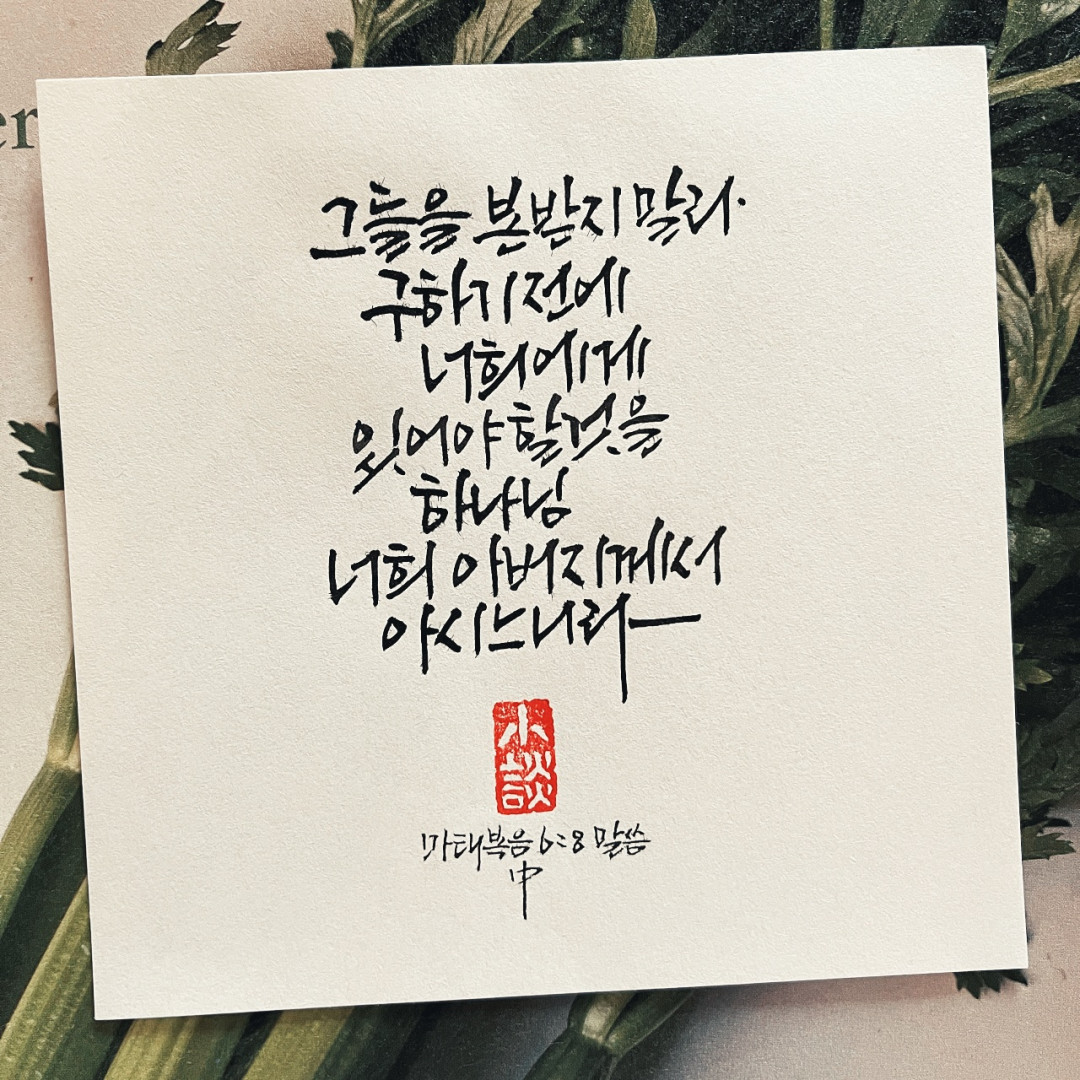 er
그들을 본받지 말라.
구하기전에
너희에게
있어야 할것을
하나님
너희 아버지께서
아시느니라
小談
마태복음 6:8 말씀
中